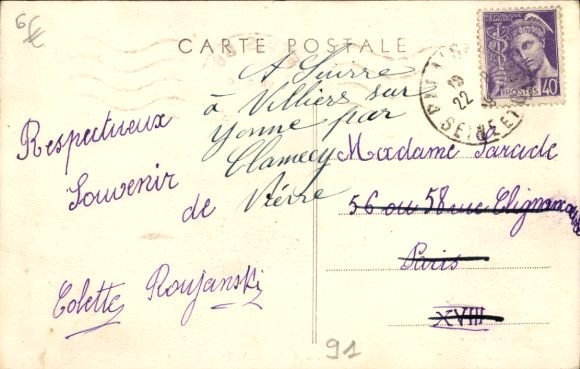 6€
CARTE POSTALE
RÉPUBLIQUE FRANÇAISE
POSTES 40c
19
22
SEINE
A Suivre
à Villiers sur
Yonne par
Clamecy
Nièvre
Respectueux
Souvenir
de
Colette Roujanski
Madame Parade
56 ou 58 rue Clignancourt
Paris
XVIII
91